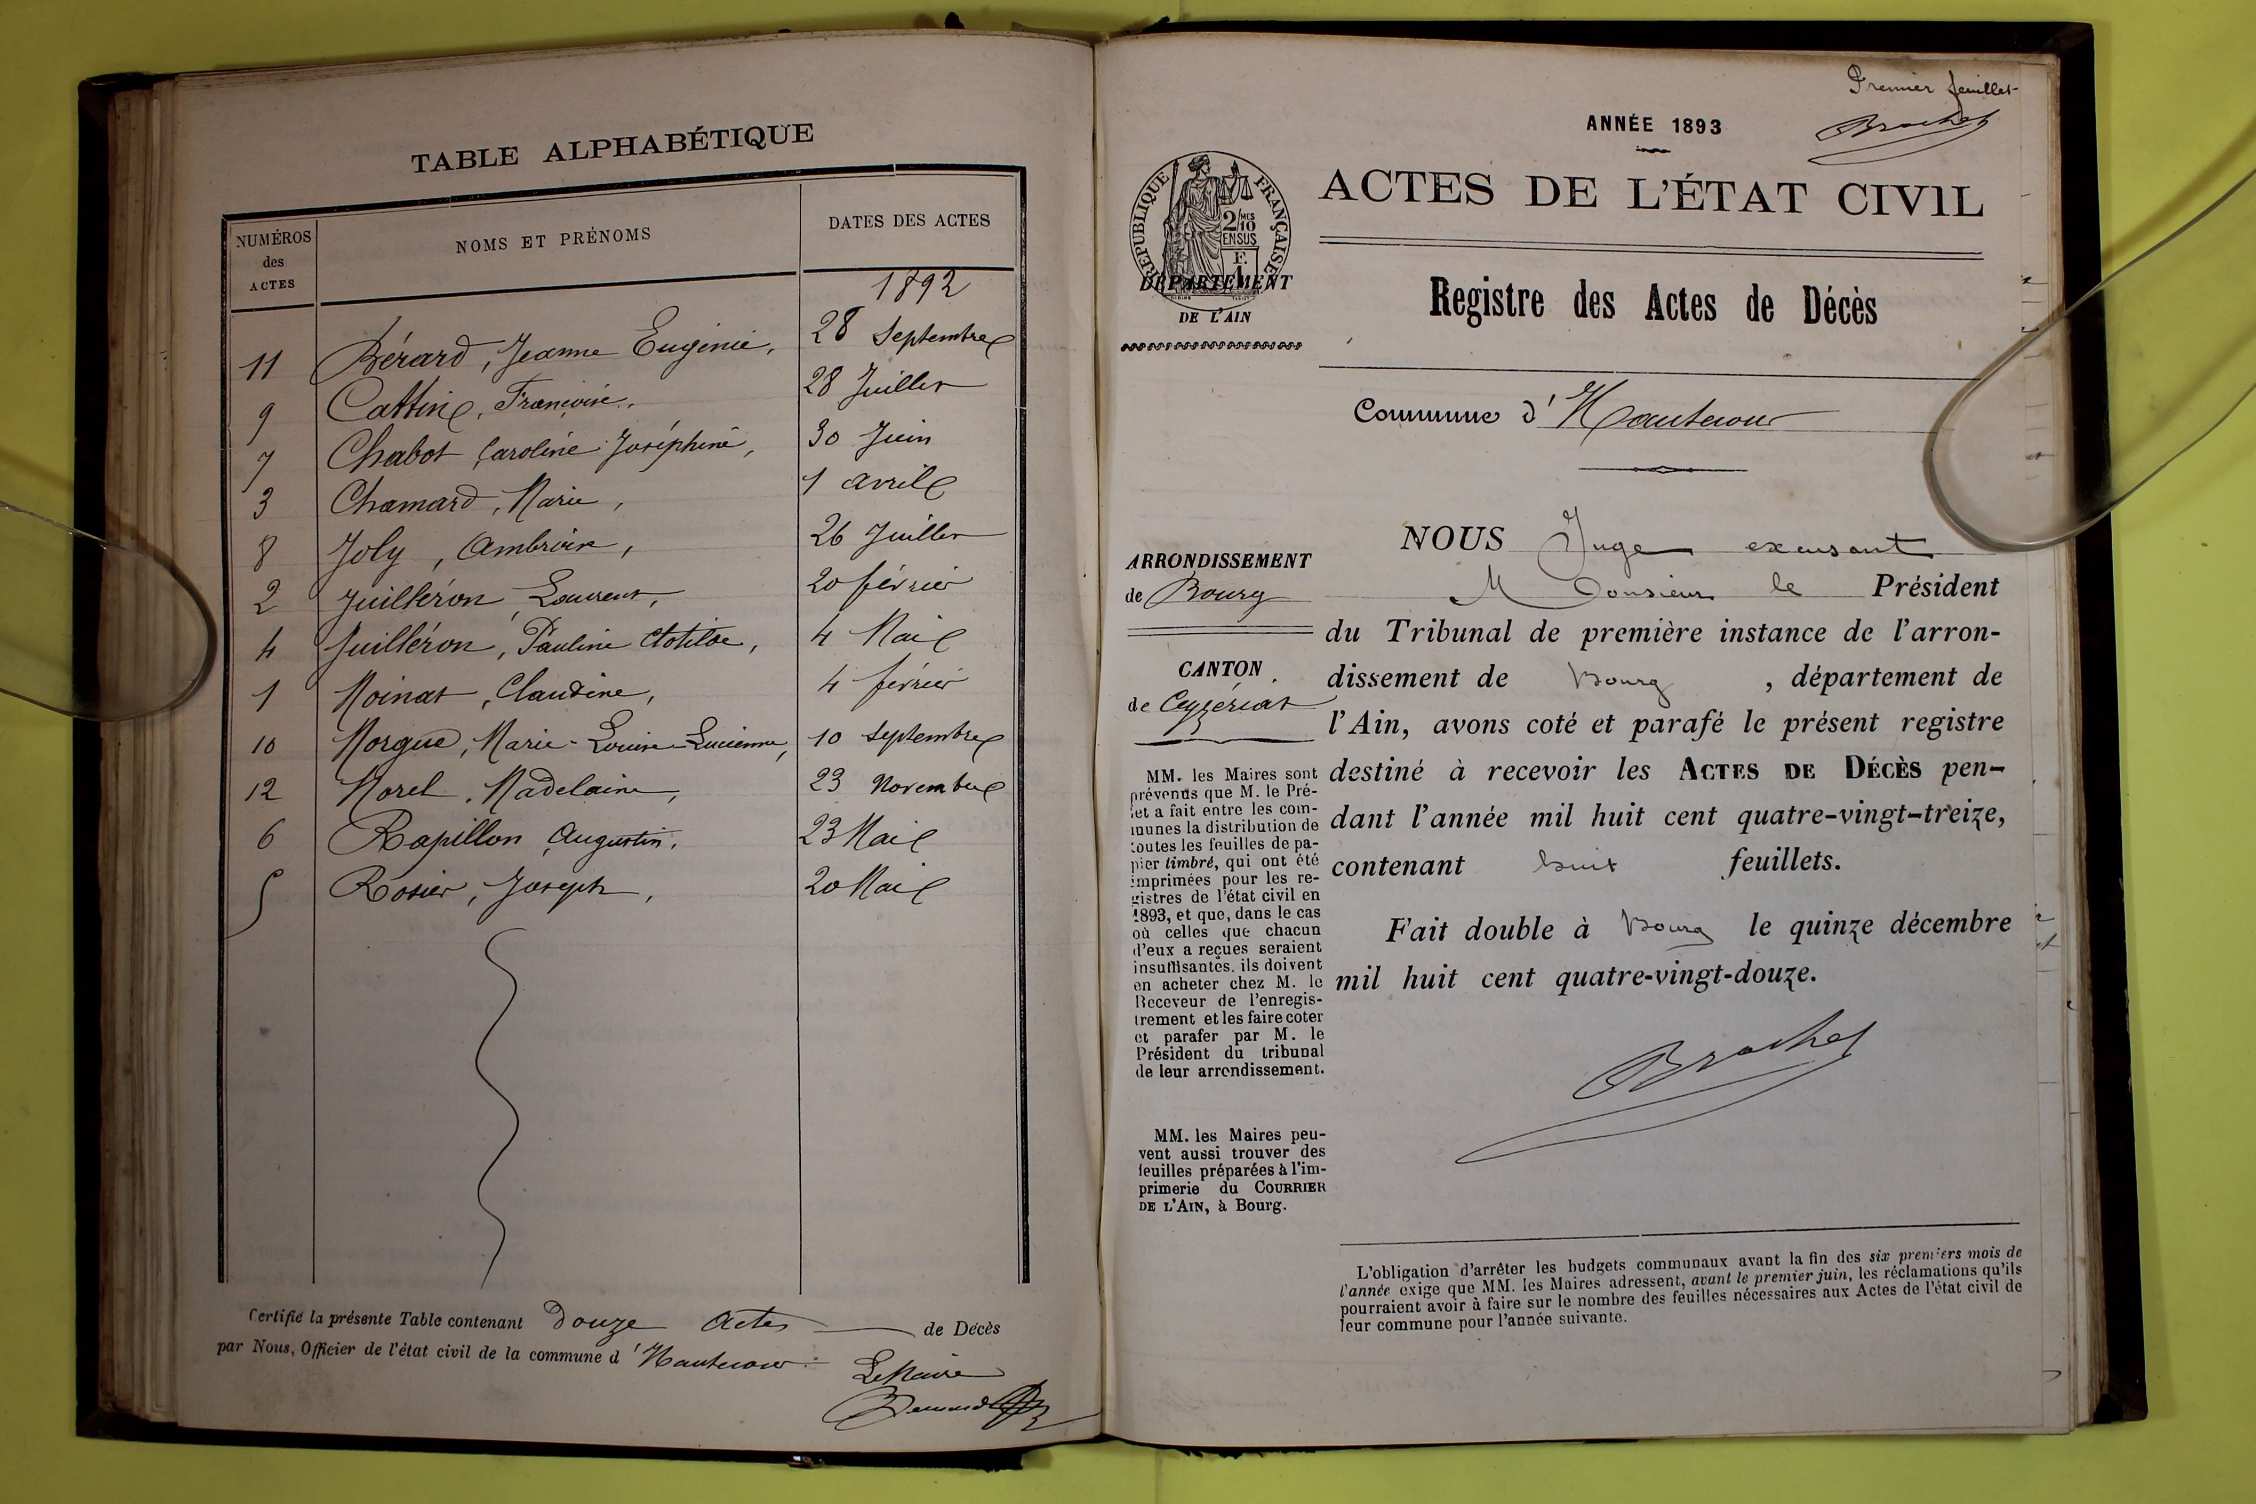 TABLE ALPHABÉTIQUE
NUMÉROS des ACTES
NOMS ET PRÉNOMS
DATES DES ACTES
1892
11 Bérard, Jeanne Eugénie, 28 Septembre
9 Cattin, Francoise, 28 Juillet
7 Chabot Caroline Joséphine, 30 Juin
3 Chamard, Marie, 1 avril
8 Joly, Ambroise, 26 Juillet
2 Juilléron, Laurent, 20 février
4 Juilléron, Pauline Clotilde, 4 Mai
1 Moinat, Claudine, 4 février
10 Morgue, Marie-Louise-Lucienne, 10 septembre
12 Morel, Madelaine, 23 Novembre
6 Rapillon Augustin, 23 Mai
5 Rosier, Joseph, 20 Mai
Certifié la présente Table contenant Douze Actes de Décès
par Nous, Officier de l'état civil de la commune d'Hautecour.
Le Maire
Premier feuillet
Brochet
ANNÉE 1893
ACTES DE L'ÉTAT CIVIL
RÉPUBLIQUE FRANÇAISE
2/10 MES
EN SUS
F.
1
DÉPARTEMENT
DE L'AIN
Registre des Actes de Décès
Commune d'Hautecour
ARRONDISSEMENT
de Bourg
CANTON
de Ceyzériat
MM. les Maires sont
prévenus que M. le Pré-
fet a fait entre les com-
munes la distribution de
toutes les feuilles de pa-
pier timbré, qui ont été
imprimées pour les re-
gistres de l'état civil en
1893, et que, dans le cas
où celles que chacun
d'eux a reçues seraient
insuffisantes, ils doivent
en acheter chez M. le
Receveur de l'enregis-
trement et les faire coter
et parafer par M. le
Président du tribunal
de leur arrondissement.
MM. les Maires peu-
vent aussi trouver des
feuilles préparées à l'im-
primerie du COURRIER
DE L'AIN, à Bourg.
NOUS Juge excusant
Monsieur le Président
du Tribunal de première instance de l'arron-
dissement de Bourg, département de
l'Ain, avons coté et parafé le présent registre
destiné à recevoir les ACTES DE DÉCÈS pen-
dant l'année mil huit cent quatre-vingt-treize,
contenant huit feuillets.
Fait double à Bourg le quinze décembre
mil huit cent quatre-vingt-douze.
Brochet
L'obligation d'arrêter les budgets communaux avant la fin des six premiers mois de
l'année exige que MM. les Maires adressent, avant le premier juin, les réclamations qu'ils
pourraient avoir à faire sur le nombre des feuilles nécessaires aux Actes de l'état civil de
leur commune pour l'année suivante.